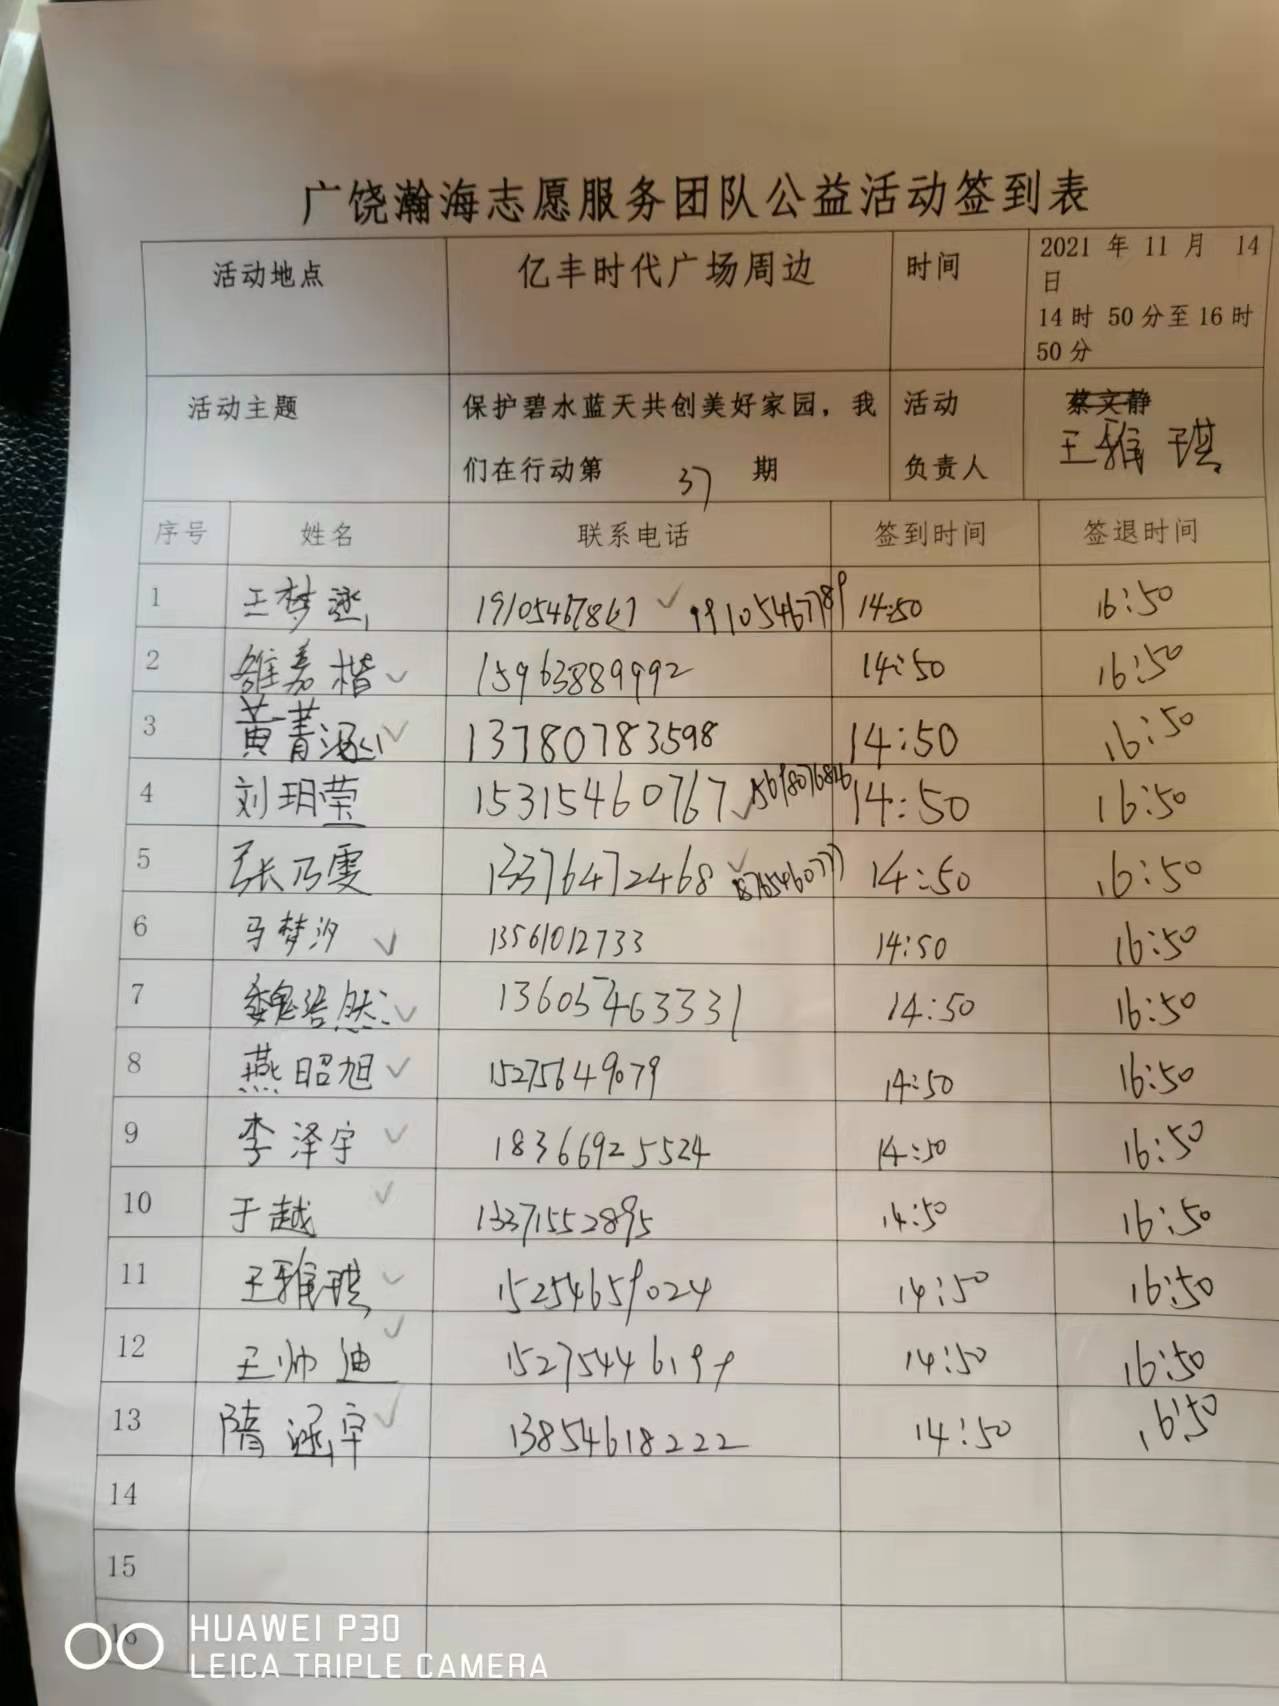 广饶瀚海志愿服务团队公益活动签到表
活动地点 亿丰时代广场周边 时间 2021 年 11 月 14
日
14时 50分至16时
50分
活动主题 保护碧水蓝天共创美好家园，我 活动 蔡文静
们在行动第 37 期 负责人 王雅琪
序号 姓名 联系电话 签到时间 签退时间
1 王梦 14:50 16:50
2 雒嘉楷 15963889992 14:50 16:50
3 黄菁涵 13780783598 14:50 16:50
4 刘玥荣 15315460767 14:50 16:50
5 张乃雯 13376472468 18765460777 14:50 16:50
6 马梦汐 13561012733 14:50 16:50
7 魏浩然 13605463331 14:50 16:50
8 燕昭旭 15275649079 14:50 16:50
9 李泽宇 18366925524 14:50 16:50
10 于越 13371552895 14:50 16:50
11 王雅琪 15254659024 14:50 16:50
12 王帅迪 15275446199 14:50 16:50
13 隋涵宇 13854618222 14:50 16:50
14
15
16
HUAWEI P30
LEICA TRIPLE CAMERA